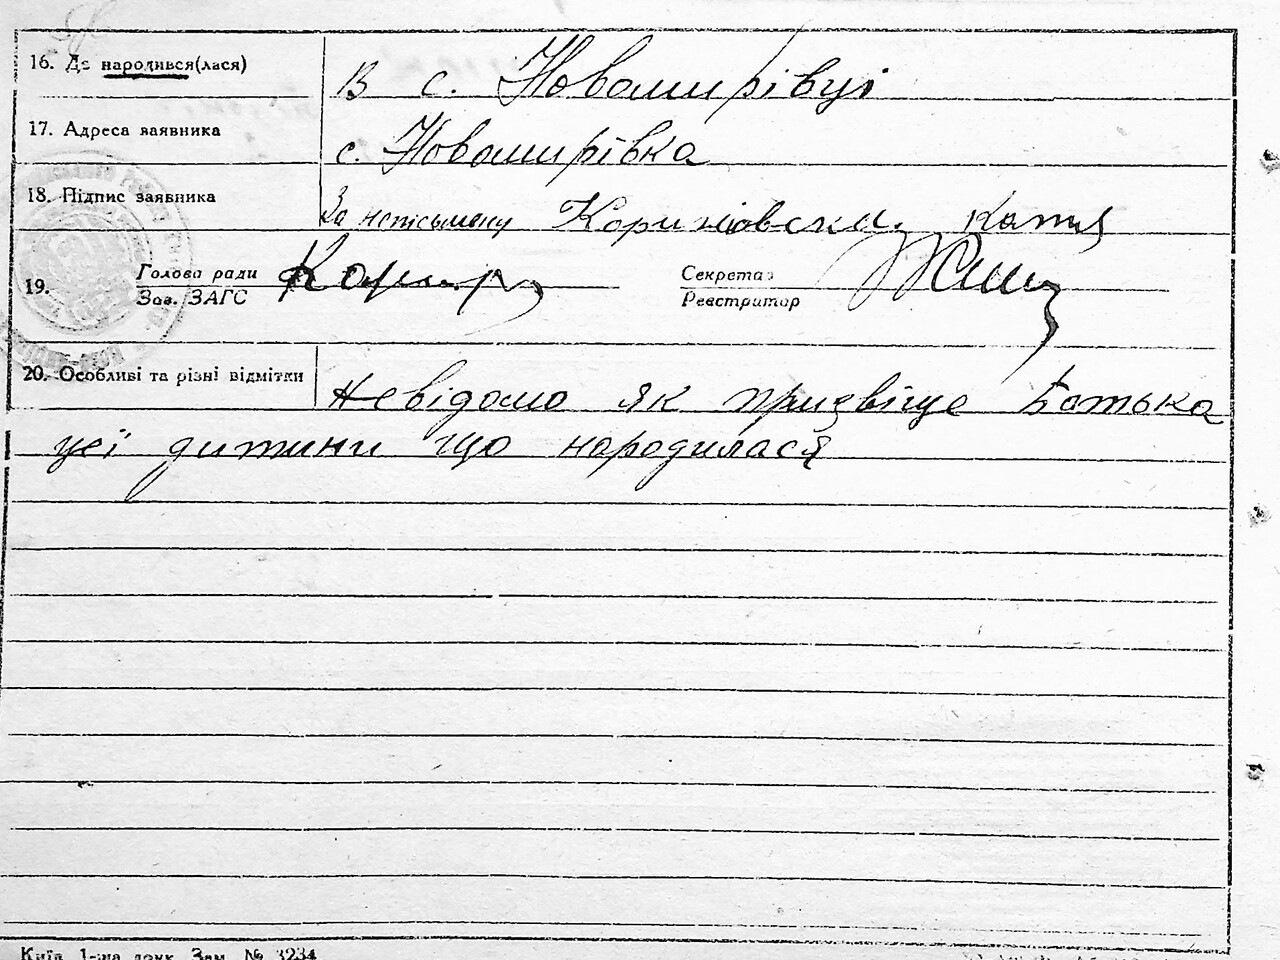 16. Де народився(лася) В с. Новомирівці
17. Адреса заявника с. Новомирівка
18. Підпис заявника За неписьмену Катя
19. Голова ради Секретар
Зав. ЗАГС Реєстратор
20. Особливі та різні відмітки Невідомо як призвіще батька
цеї дитини що народилася
Київ 1-ша друк. Зам. № 3234